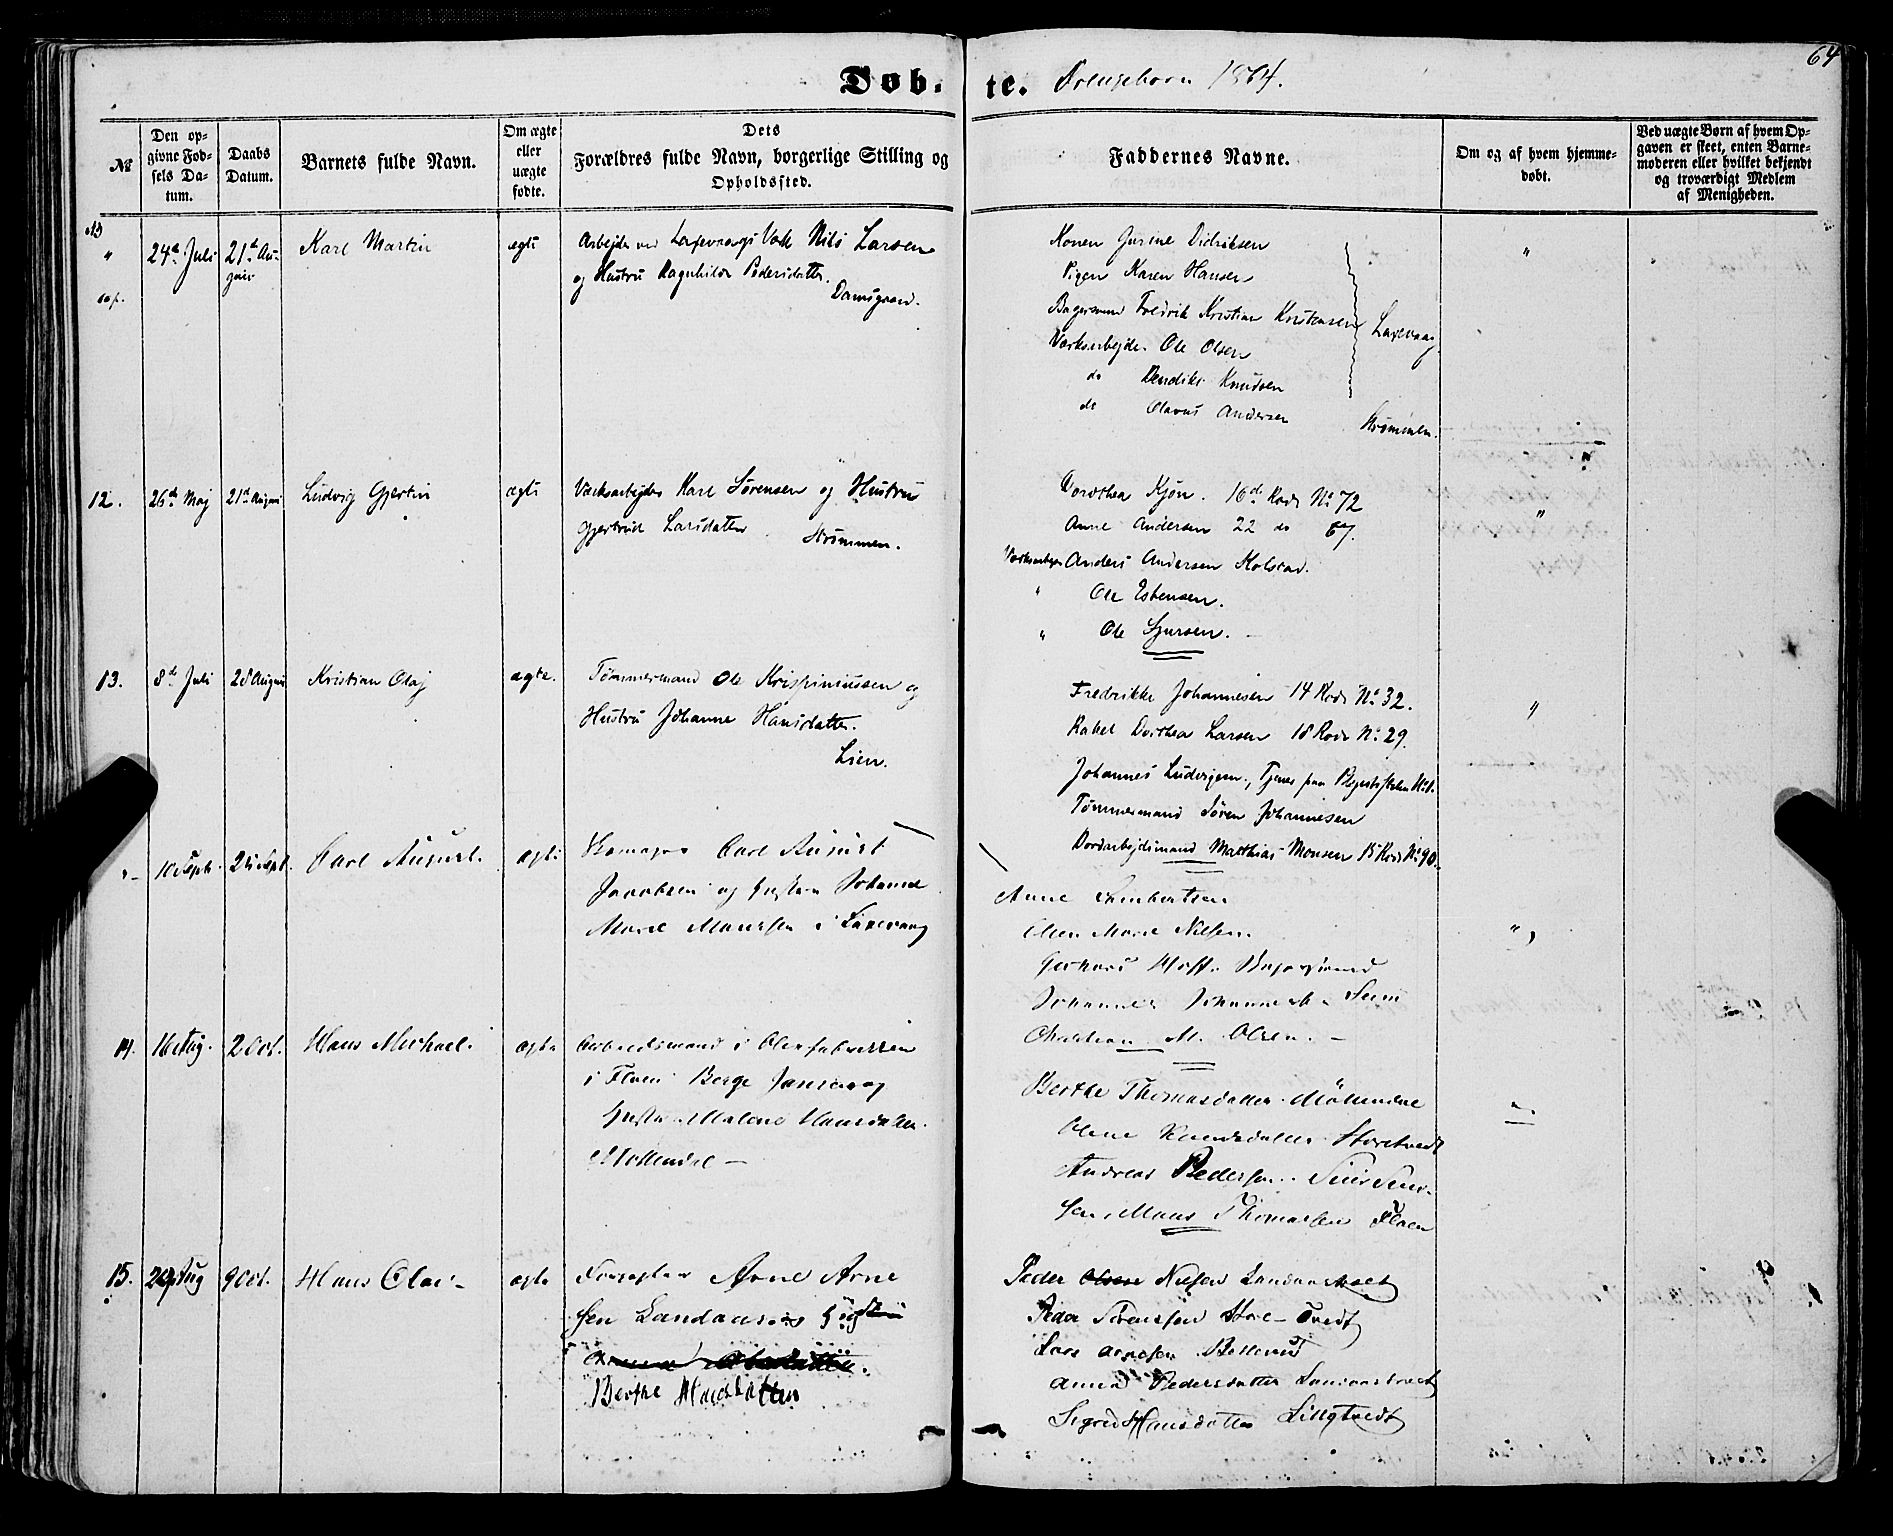 64
Døb- te. Drengebørn 1864.
No
Den op-
givne Fød-
sels Da-
tum.
Daabs
Datum.
Barnets fulde Navn.
Om ægte
eller
uægte
fødte.
Dets
Forældres fulde Navn, borgerlige Stilling og
Opholdssted.
Faddernes Navne.
Om og af hvem hjemme-
døbt.
Ved uægte Børn af hvem Op-
gaven er skeet, enten Barne-
moderen eller hvilket bekjendt
og troværdigt Medlem
af Menigheden.
" 24de Juli 21de Au-
gust
Karl Martin
ægte
Arbejder ved Laxevaags Værk Nils Larsen
og Hustru Ragnhilde Pedersdatter.
Damsgaard.
Konen Gurine Didriksen
Pigen Karen Hansen
Bagersvend Fredrik Kristian Kristensen
Laxevaag.
Værksarbejder Ole Olsen
do Bendiks Knudsen
do Olavus Andersen Strømmen.
"
12. 26de Maj 21de August Ludvig Gjertin ægte
Værksarbejder Karl Sørensen og Hustru
Gjertrud Larsdatter Strømmen.
Dorothea Kjøn. 16de Rode No 72
Anne Andersen 22 do 67.
Værksarbejder Anders Andersen Kolstad.
" Ole Estensen.
" Ole Sjursen.
"
13. 8de Juli 28 August Kristian Olaj ægte.
Tømmermand Ole Krispiniussen og
Hustru Johanne Hansdatter.
Lien.
Fredrikke Johannesen 14 Rode No 32.
Rakel Dorthea Larsen 18 Rode No 29.
Johannes Ludvigsen, Tjener paa
Tømmermand Søren Johannesen
Matthias Monsen 15 Rode No 90.
"
"- 10 Septb. 25 Sept. Carl August. ægte
Skomager Carl August
Jacobsen og Hustru Johanne
Marie Monssen i Laxevaag
Anne Lambertsen
Olen Marie Nilsen.
Gerhard Hoff. Bagersvend
Johannes
Christian M. Olsen. -
"
14. 16 Aug. 2 Oct. Hans Michael. ægte
Arbeidsmand i Oliefabrikken
i Floen Berge Jansen og
Hustru Malene Hansdatter.
Møllendal -
Berthe Thomasdatter Møllendal
Oline Knudsdatter Storetvedt
Andreas Pedersen.
sen. Mons Thomassen Floen
"
15. 20 Aug 9 Oct. Hans Olai - ægte
Arne Arne
sen Landaas
Berthe Hansdatter
Peder Nilsen Landaasstræt
Peder Sørensen Store-Tvedt
Lars Arnesen
Anna Pedersdatter Landaasstræt
Sigrid Hansdatter